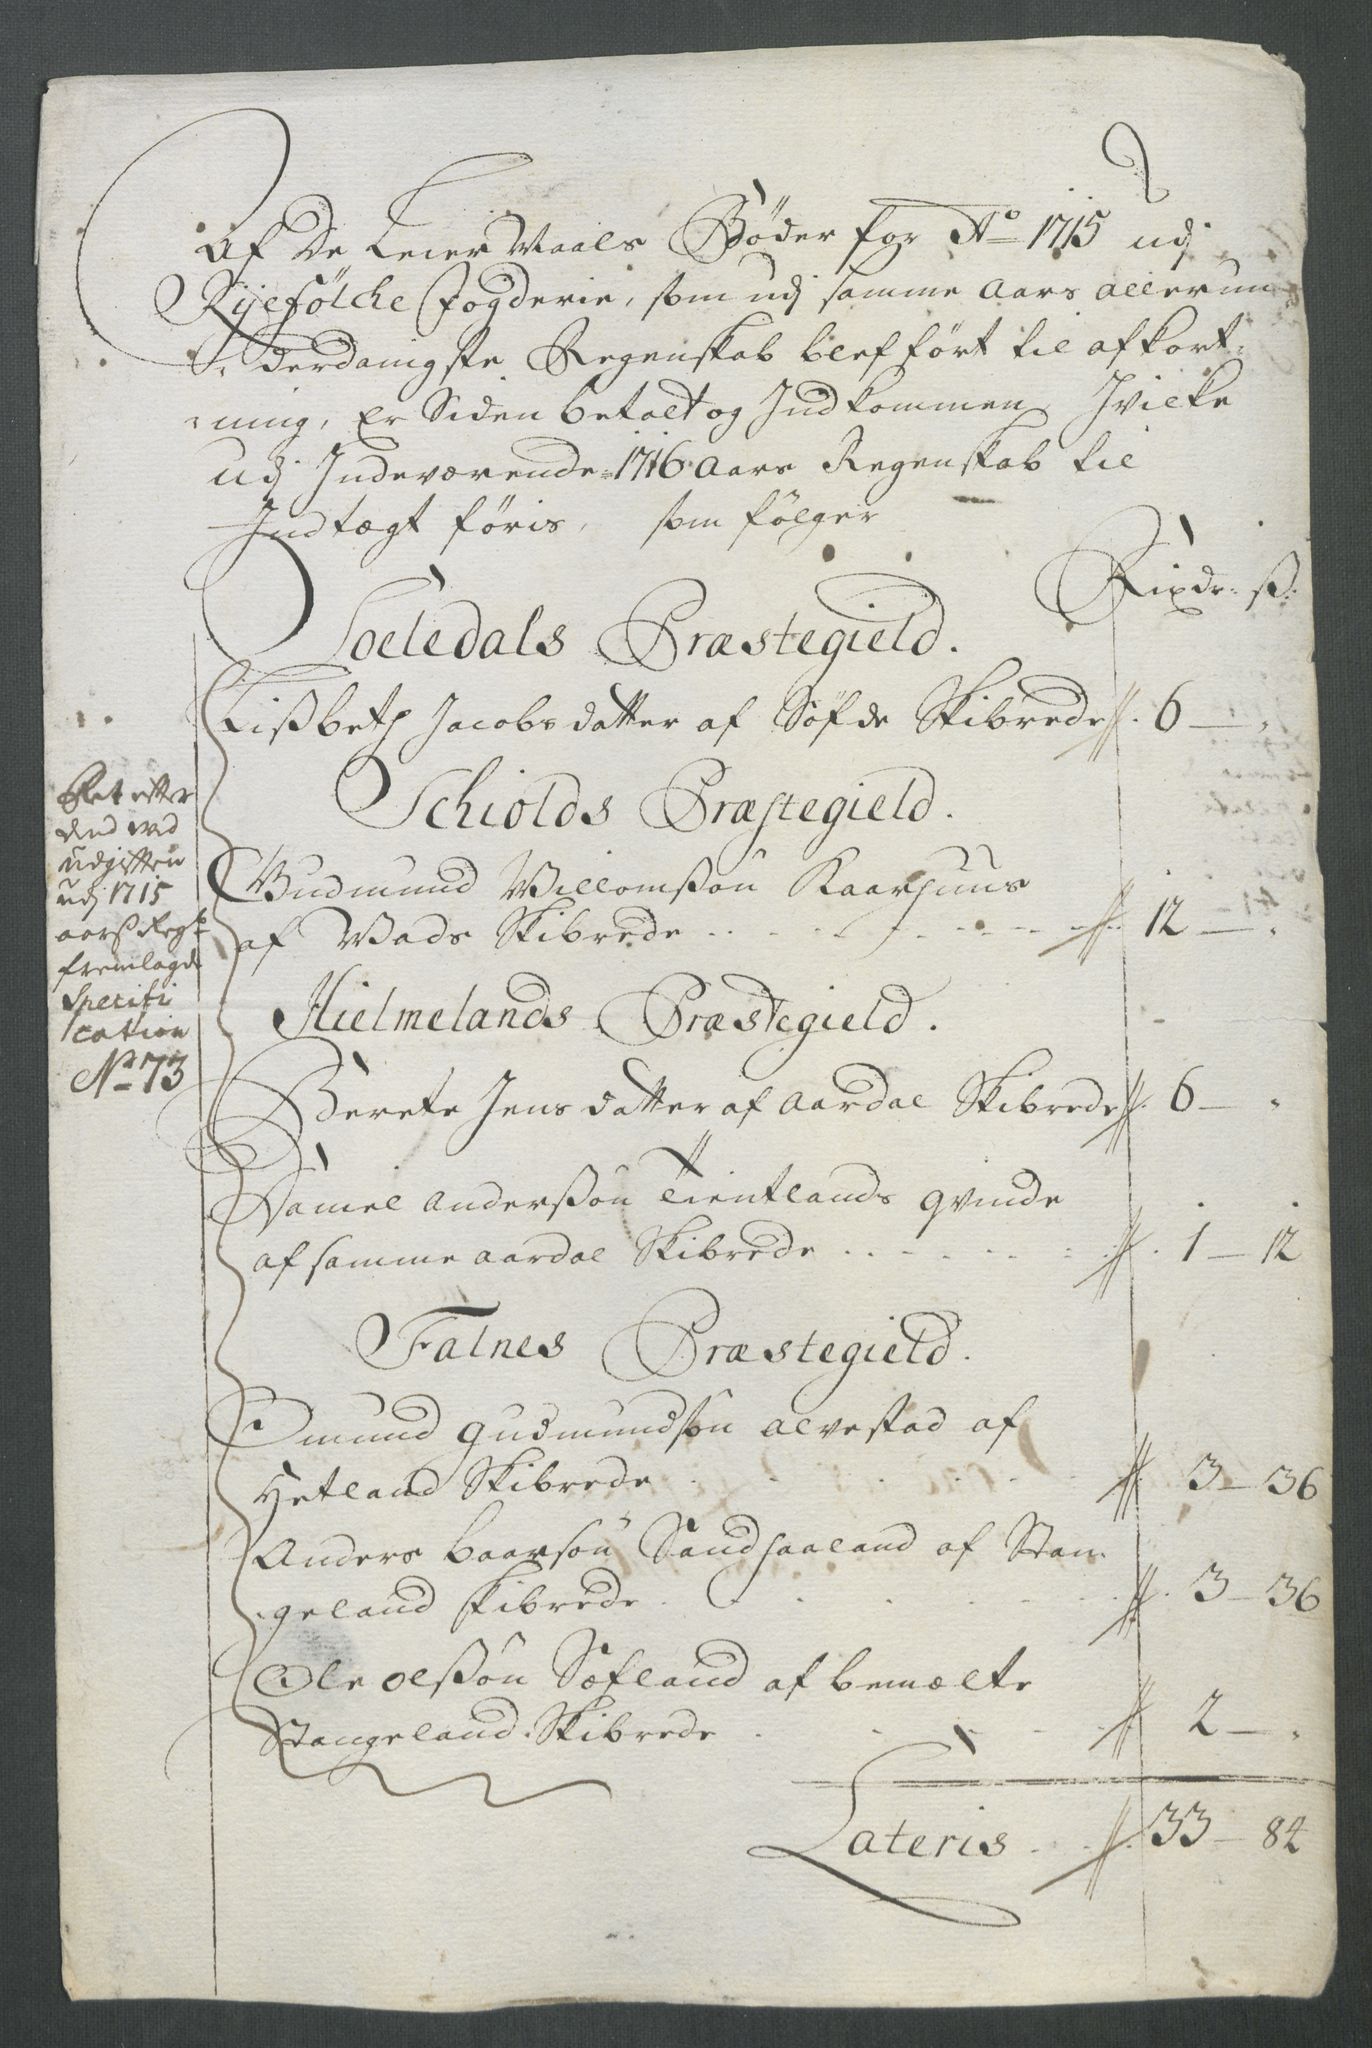 Af De Leier Maals Bøder for Ao 1715 udj
Ryefölche Fogderie, som udj samme Aars allerun-
derdanigste Regenskab blef ført til afkort-
ning, Er Siden betalt og Indkommen, Hvilke
udj Indeværende 1716 Aars Regenskab til
Indtægt føris, som følger
Rixdr: ß:
Soeledals Præstegield.
Lißbeth Jacobsdatter af Søfde Skibrede 6 — „
Schiolds Præstegield.
Gudmund Willomßøn Kaarhuus
af Wads Skibrede 12 — „
Hielmelands Præstegield.
Berete Jensdatter af Aardal Skibrede 6 — „
Daniel Anderßøn Tientlands qvinde
af samme Aardal Skibrede 1 — 12
Falnes Præstegield.
Omund Gudmundsøn Alvestad af
Hetland Skibrede 3 — 36
Anders Baarsøn Sandhaaland af Stan-
geland Skibrede 3 — 36
Ole Olßøn Sæfland af bemælte
Stangeland Skibrede 2 — „
Lateris 33 — 84
Ret efter
dend ved
udgiften
udj 1715
aarß Regsk
fremlagde
Specifi
cation
No 73